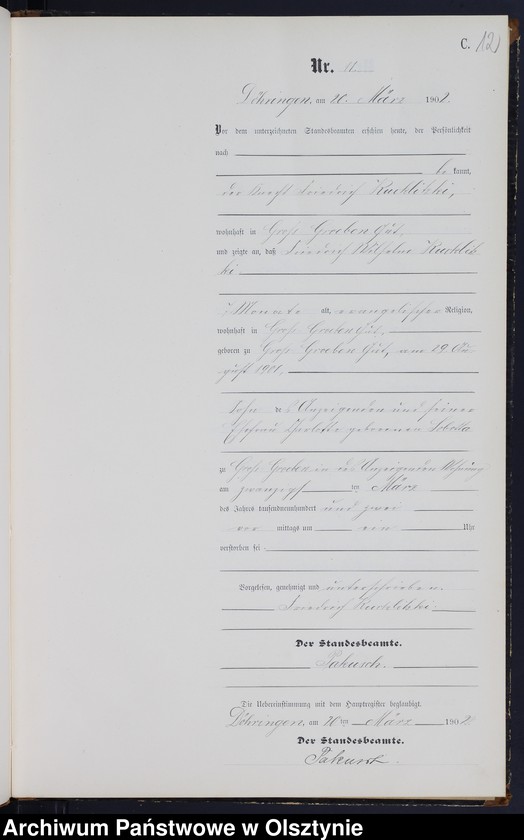 C. 12
Nr. 11.
Döhringen, am 20. März 1902.
Vor dem unterzeichneten Standesbeamten erschien heute, der Persönlichkeit
nach
be kannt,
der Knecht Friedrich Kucklitzki,
wohnhaft in Groß Groeben Gut,
und zeigte an, daß Friedrich Wilhelm Kucklitz
ki
7 Monate alt, evangelischer Religion,
wohnhaft in Groß Groeben Gut,
geboren zu Groß Groeben Gut, am 19. Au-
gust 1901,
Sohn des Anzeigenden und seiner
Ehefrau Charlotte geborenen
zu Groß Groeben in des Anzeigenden Wohnung
am zwanzigsten März
des Jahres tausendneunhundert und zwei
vor mittags um ein Uhr
verstorben sei.
Vorgelesen, genehmigt und unterschrieben.
Friedrich Kucklitzki.
Der Standesbeamte.
Die Uebereinstimmung mit dem Hauptregister beglaubigt.
Döhringen, am 20ten März 1902.
Der Standesbeamte.
Archiwum Państwowe w Olsztynie